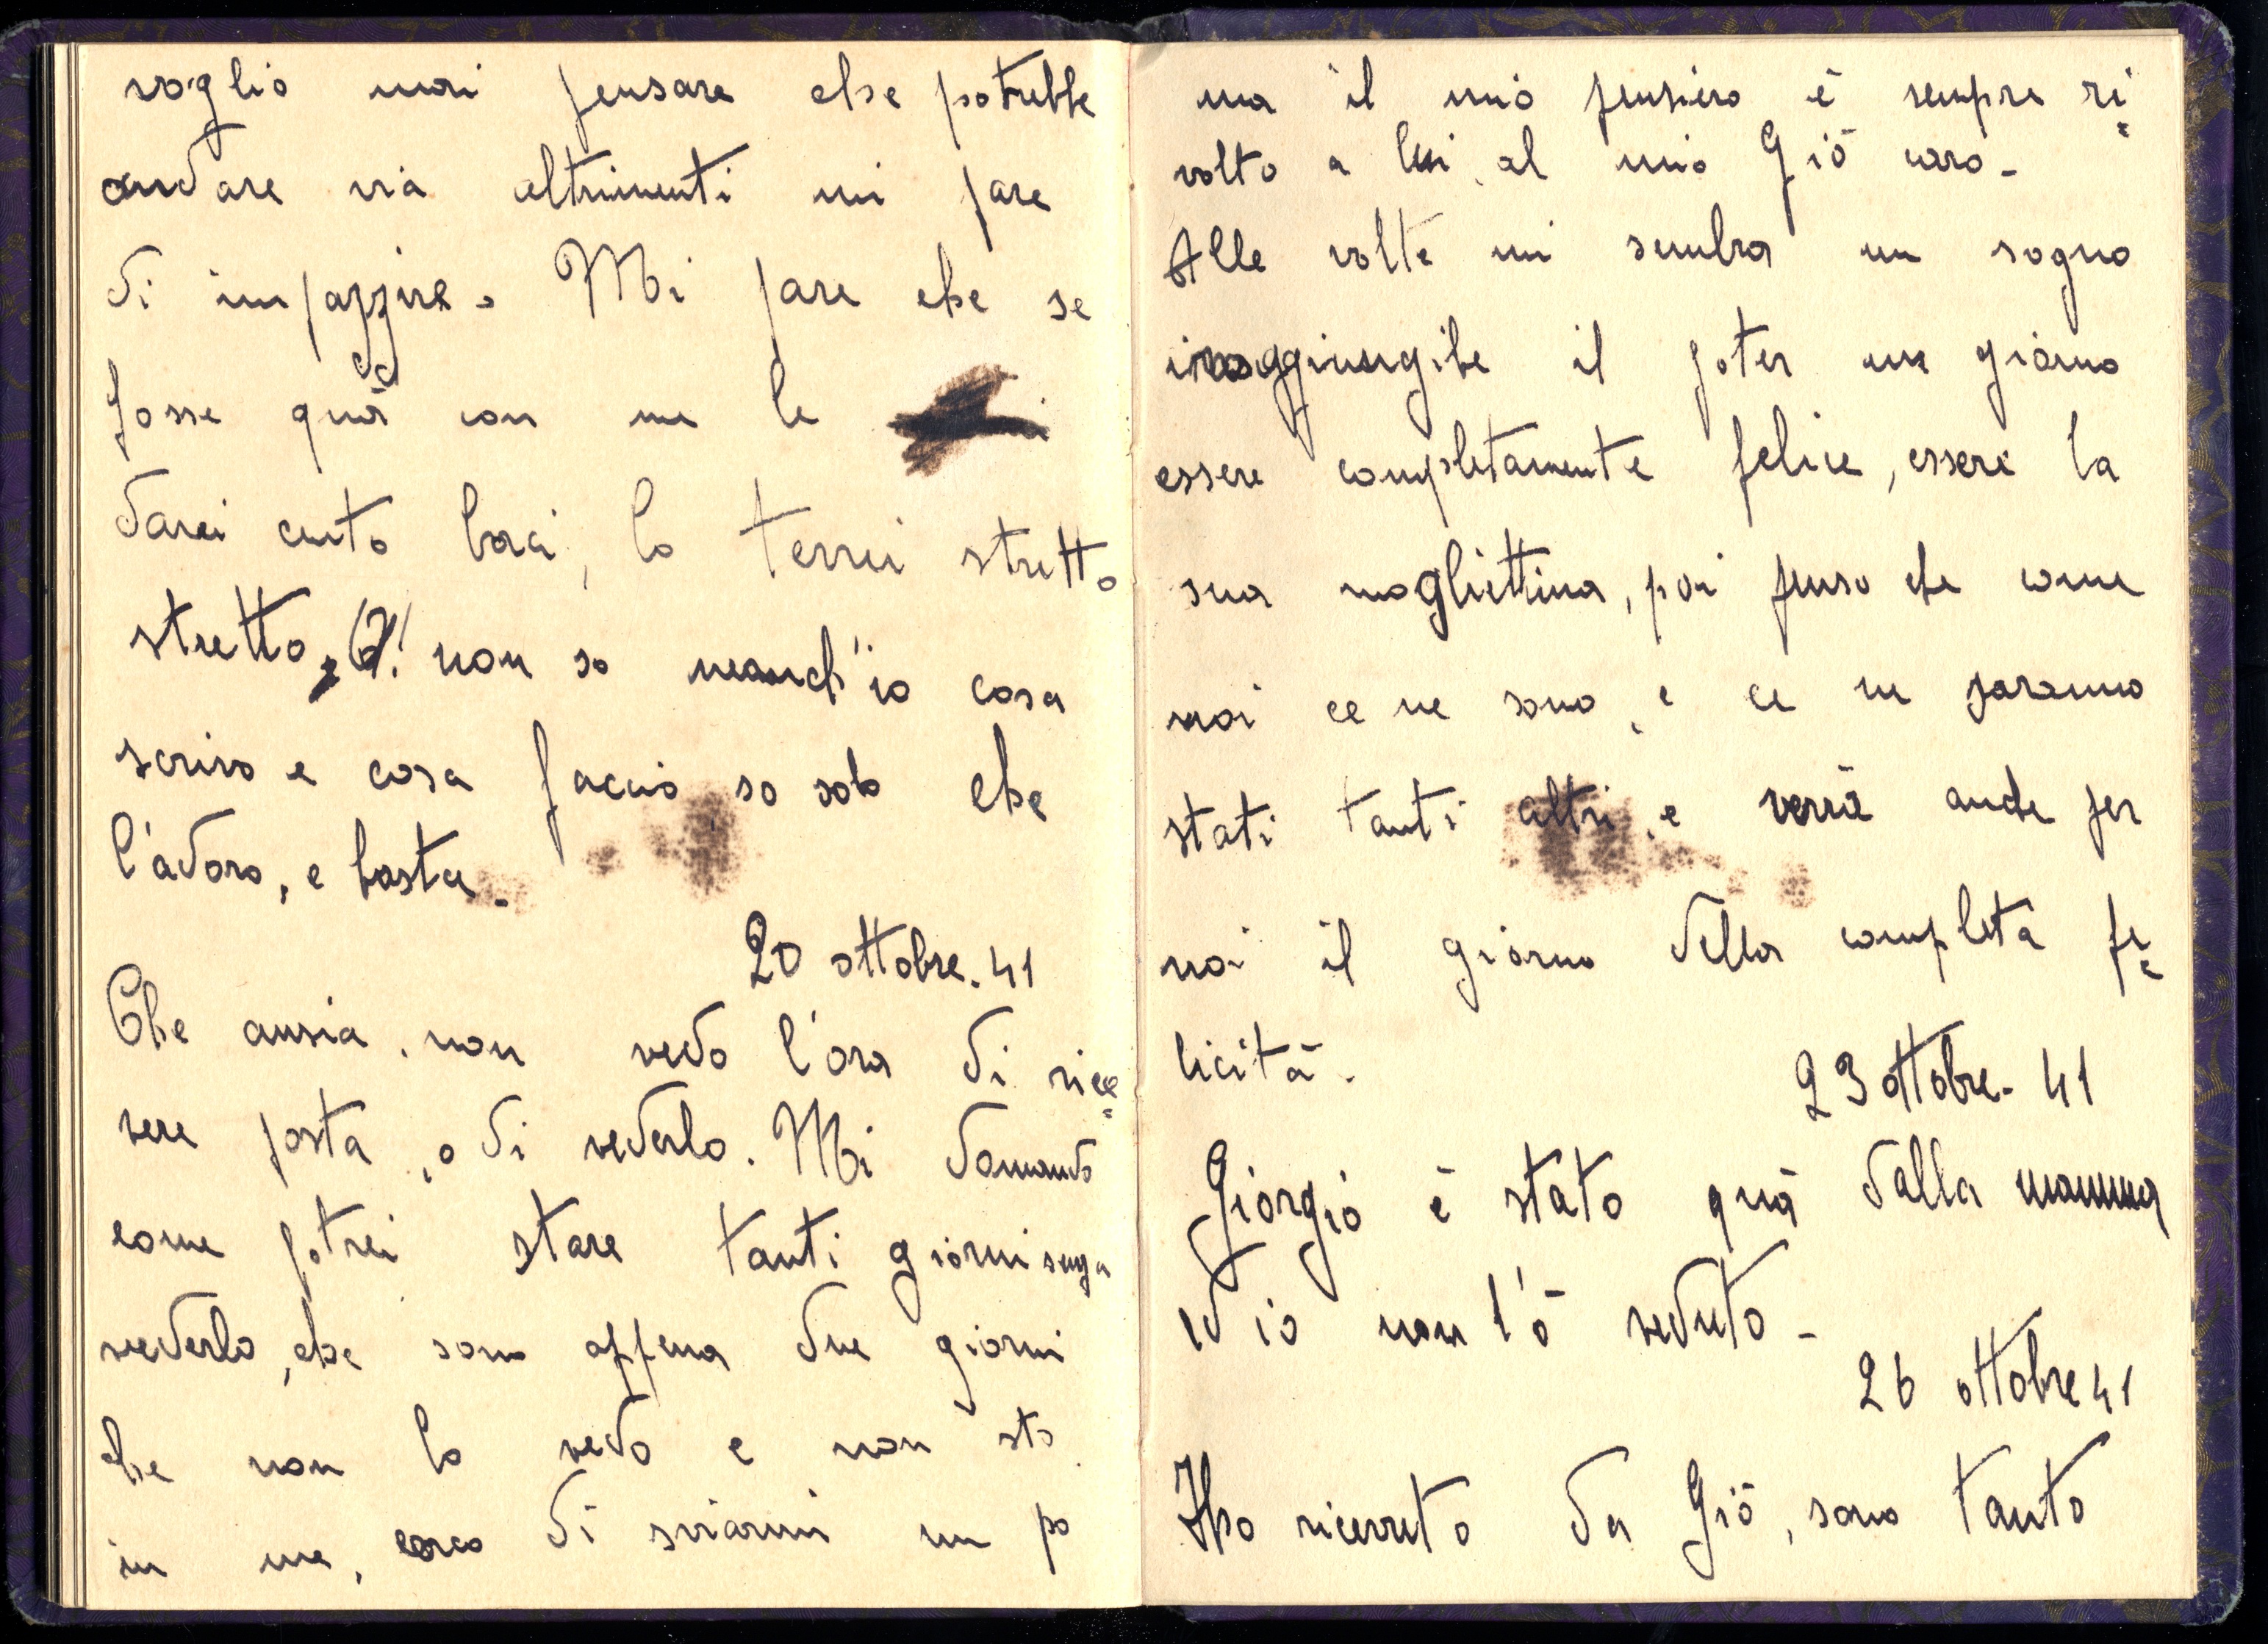 voglio mai pensare che potrebbe
andare via altrimenti mi pare
di impazzire. Mi pare che se
fosse quà con me le
darei cento baci, lo terrei stretto
stretto. O! non so neanch'io cosa
scrivo e cosa faccio, so solo che
l'adoro, e basta.
20 ottobre. 41
Che ansia, non vedo l'ora di rice=
vere posta, o di vederlo. Mi domando
come potrei stare tanti giorni senza
vederlo, che sono appena due giorni
che non lo vedo e non sto
in me, cerco di sviarmi un po
ma il mio pensiero è sempre ri=
volto a lui, al mio Giò caro.
Alle volte mi sembra un sogno
iraggiungibe il poter un giorno
essere completamente felice, essere la
sua mogliettina, poi penso che come
noi ce ne sono, e ce ne saranno
stati tanti altri, e verrà anche per
noi il giorno della completa fe=
licità.
23 ottobre. 41
Giorgio è stato quà dalla mamma
ed io non l'ò veduto.
26 ottobre 41
Ho ricevuto da Giò, sono tanto